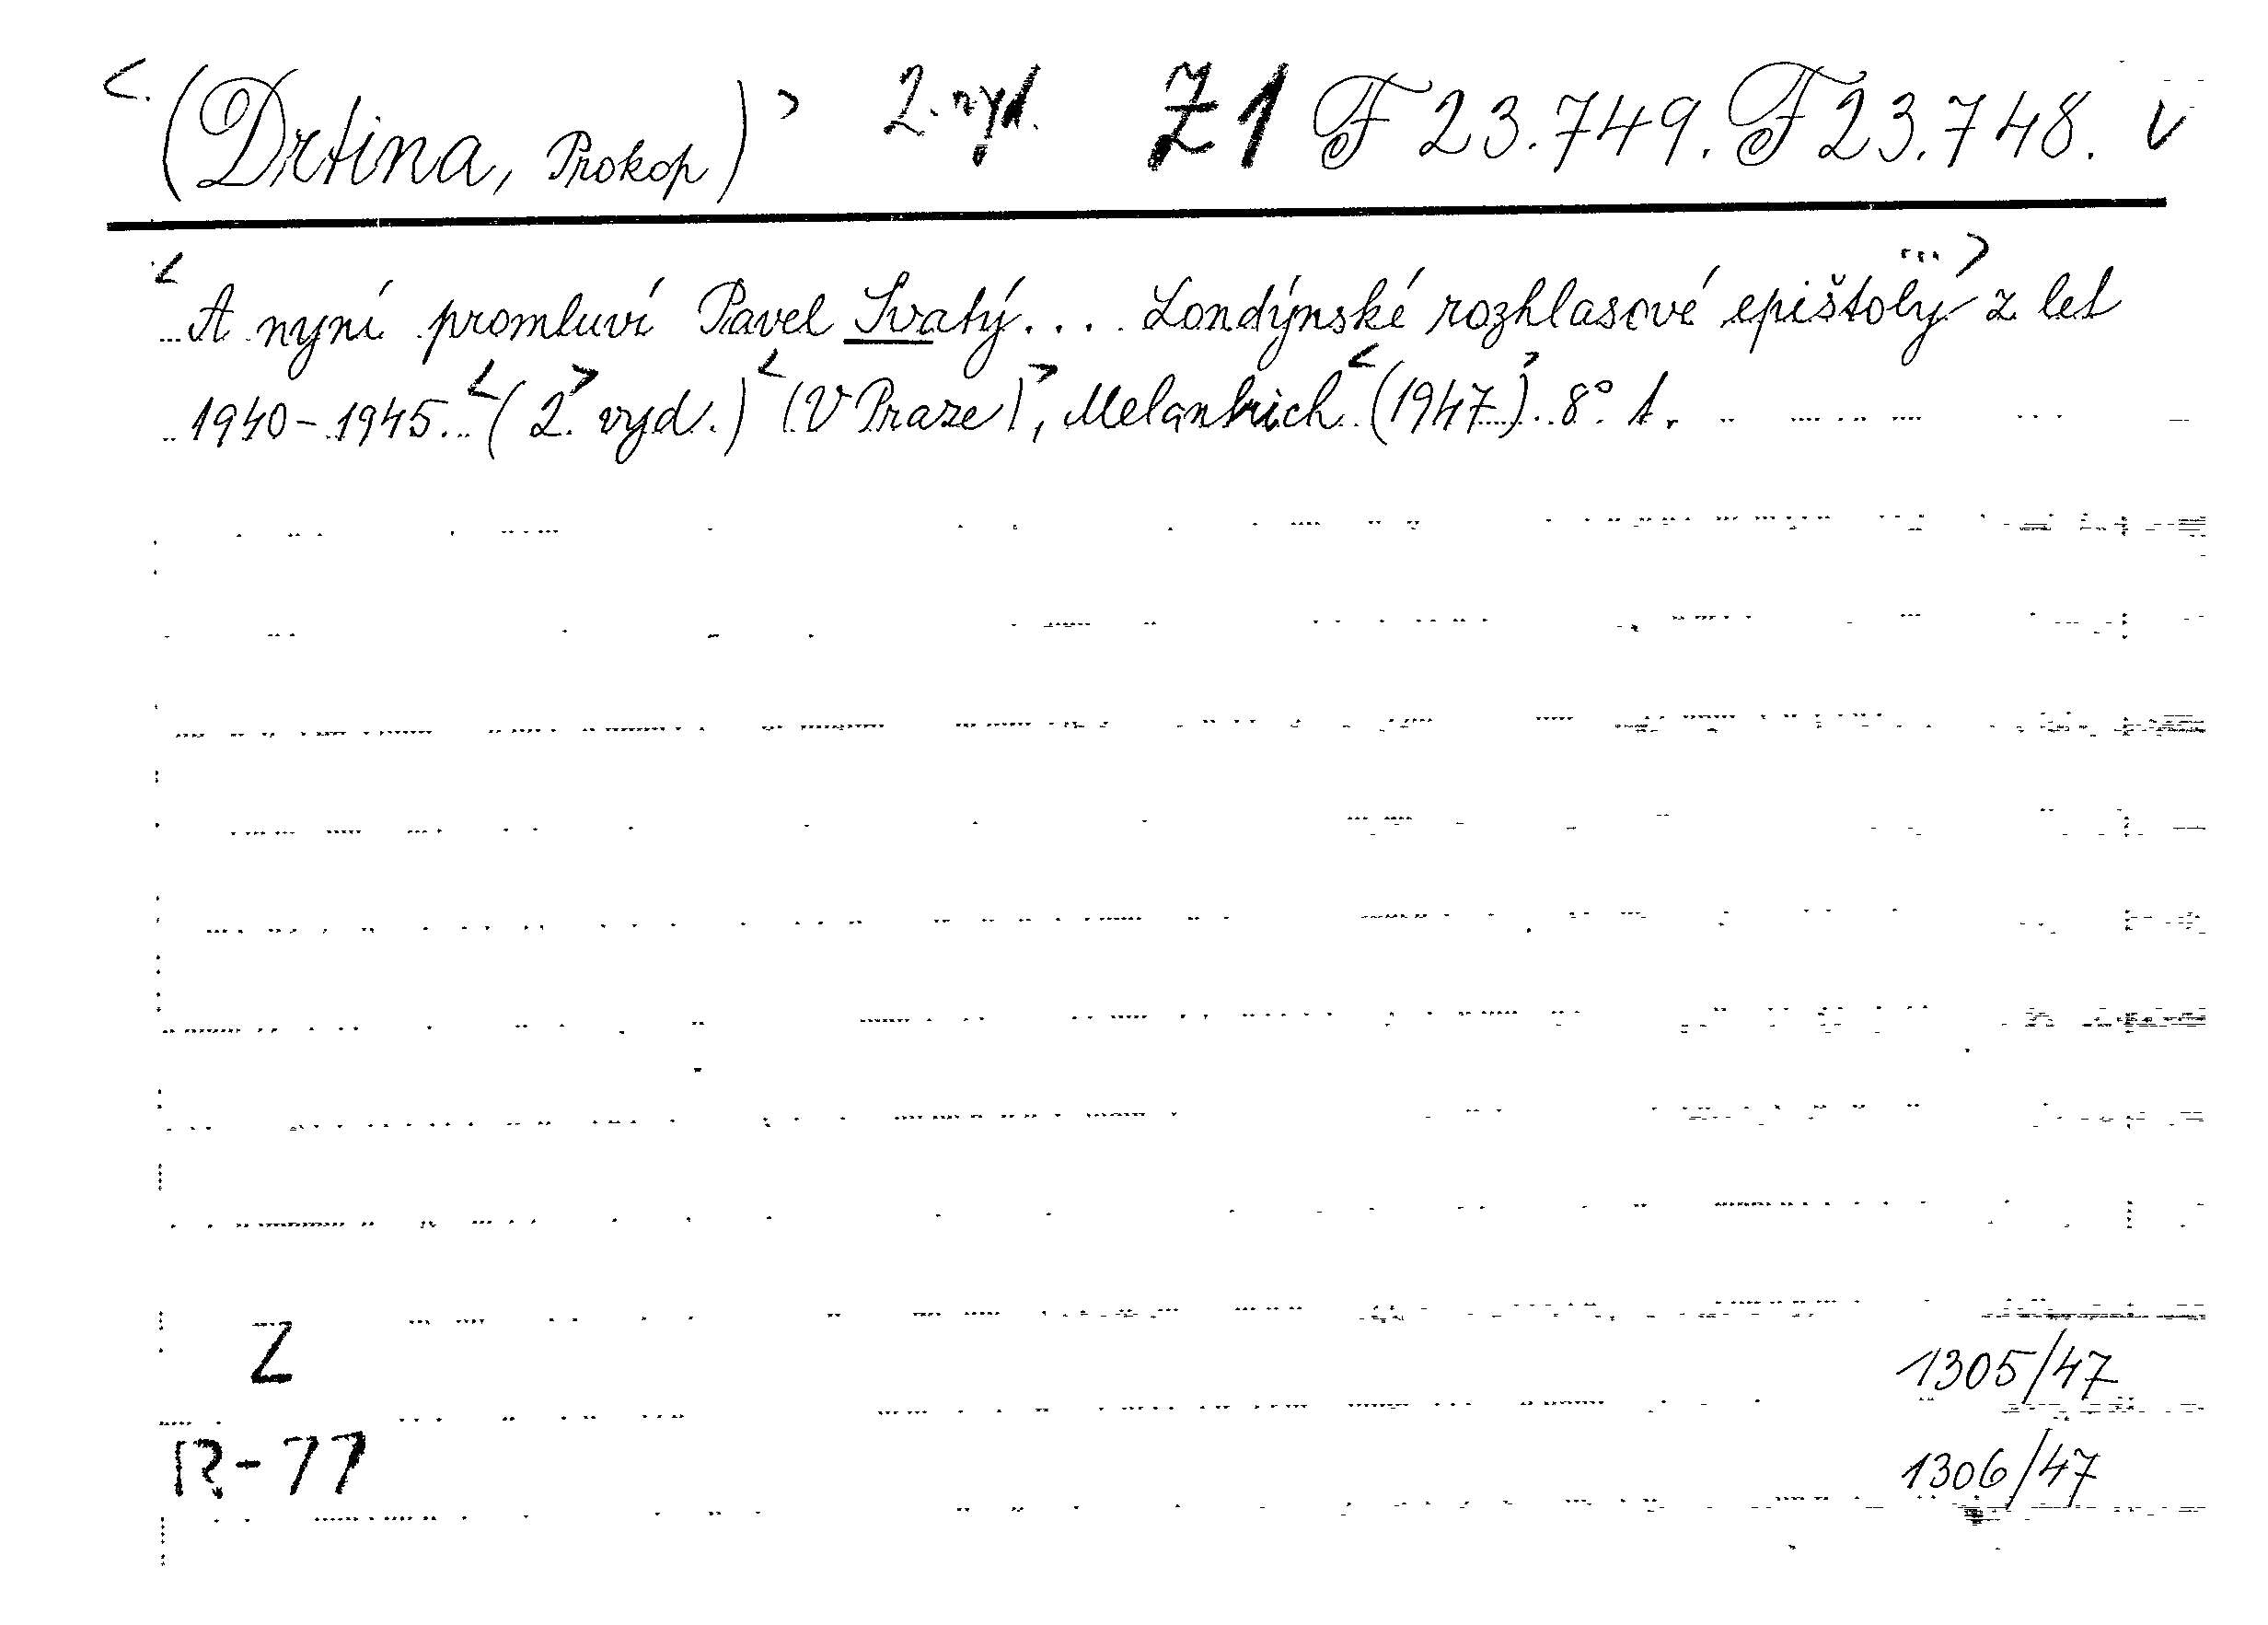 <(Drtina, Prokop)> 2. vyd. Z1 F 23.749. F 23.748. v
<A nyní promluví Pavel Svatý.... Londýnské rozhlasové epištoly ...> z let
1940-1945. <(2.> vyd.) <(V Praze)>, Melantrich <(1947)>. 8°. 1.
Z
1305/47
R-77
1306/47